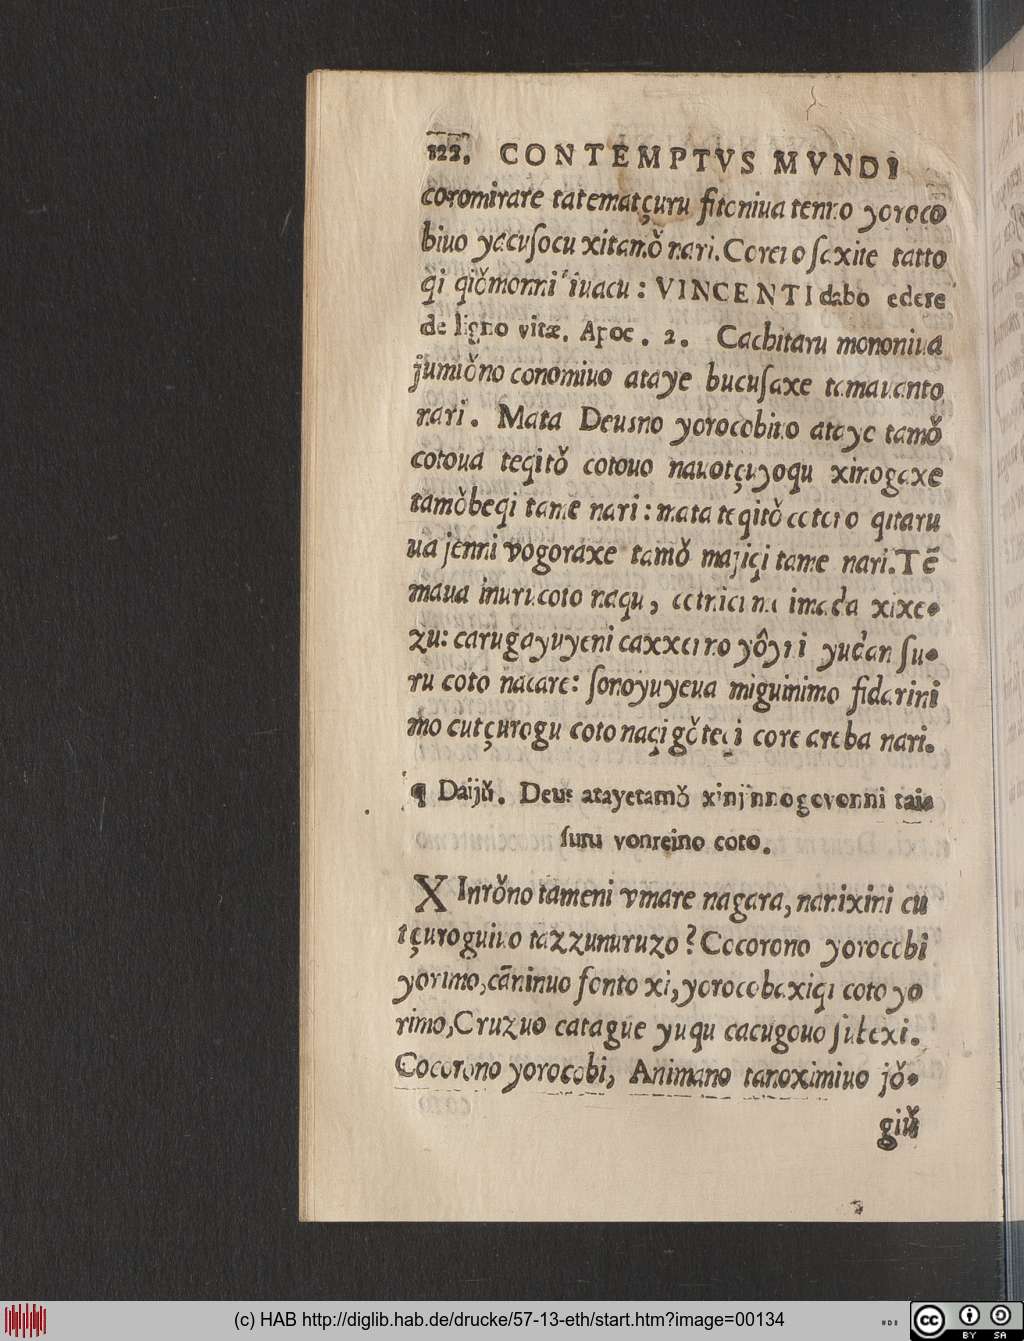 122. CONTEMPTVS MVNDI
coromirare tatematçuru fitoniua tenno yoroco
biuo yacuſocu xitamǒ nari. Corei o ſaxite tatto
qi qiǒmonni iuacu: VINCENTI dabo edere
de ligno vitæ. Apoc. 2. Cachitaru mononiua
jumiǒno conomiuo ataye bucuſaxe tamauanto
nari. Mata Deusno yorocobiuo ataye tamǒ
cotoua teqitǒ cotouo nauotçuyoqu xinogaxe
tamǒbeqi tame nari: mata teqitǒ cotouo qitaru
ua jenni vogoraxe tamǒ majiqi tame nari. Tẽ
maua inuru coto naqu, xixe-
zu: carugayuyeni caxxenno yôyni yudan ſu-
ru coto nacare: ſonoyuyeua miguinimo fidarini
mo cutçurogu coto naqi gǒteqi core areba nari.
¶ Daijŭ. Deus atayetamǒ xinjinnogovonni taix
ſuru vonreino coto.
XInrǒno tameni vmare nagara, nanixini cu
tçuroguiuo tazzunuruzo? Cocorono yorocobi
yorimo, cãninuo fonto xi, yorocobaxiqi coto yo
rimo, Cruzuo catague yuqu cacugouo ſitexi.
Cocorono yorocobi, Animano tanoximiuo jǒ-
giŭ
(c) HAB http://diglib.hab.de/drucke/57-13-eth/start.htm?image=00134
cc BY SA